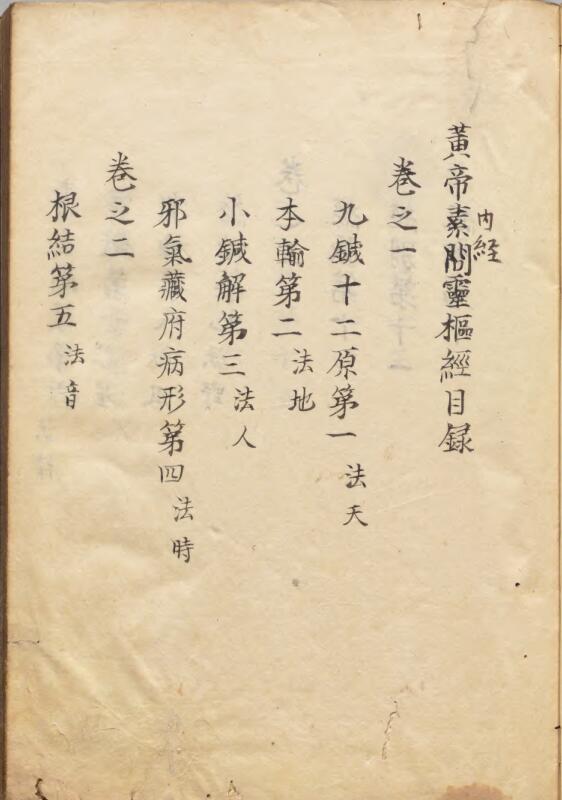 黄帝素問靈樞經目録
内経
巻之一
九鍼十二原第一 法天
本輸第二 法地
小鍼解第三 法人
邪氣藏府病形第四 法時
巻之二
根結第五 法音